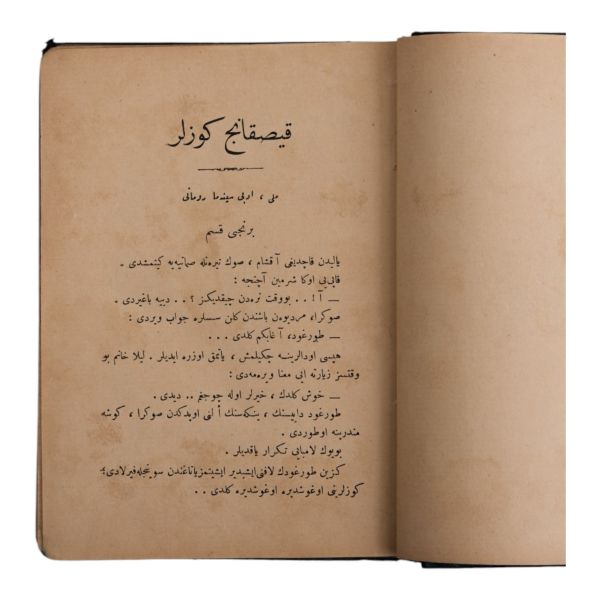 قيصقانج كوزلر
ملى ، ادبى سينه‌ما رومانى
برنجى قسم
ياليدن قاچديغى آقشام ، صوك ترەنله صمانيه‌يه كيتمشدى .
قاپى‌يى اوكا شرمين آچنجه :
— آ ! . . بووقت نره‌دن چيقديكز ؟ . . دييه باغيردى .
صوكرا، مرديوەن باشندن كلن سسلره جواب ويردى :
— طورغود، آغابكم كلدى . . .
هپسى اودالرينه چكيلمش ، ياتمق اوزره ايديلر . ليلا خانم بو
وقتسز زيارته ايى معنا ويره‌مه‌دى :
— خوش كلدك ، خيرلر اوله چوجغم . . ديدى .
طورغود دايسنك ، ينكه‌سنك ألنى اوپدكدن صوكرا ، كوشه
مندرينه اوطوردى .
بويوك لامبايى تكرار ياقديلر .
كزين طورغودك لافنى ايشيدير ايشيتمز ياتاغندن سوينجله فيرلادى؛
كوزلرينى اوغوشديره اوغوشديره كلدى . .